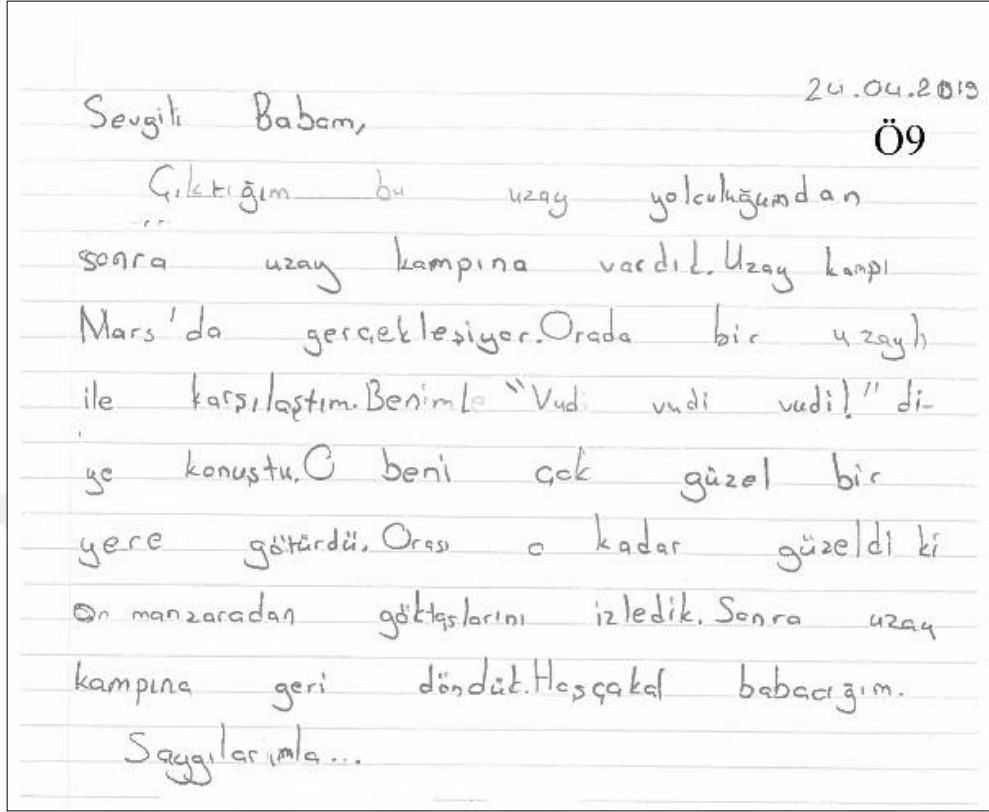 24.04.2019
Sevgili Babam,
Ö9
Çıktığım bu uzay yolculuğumdan
sonra uzay kampına vardık. Uzay kampı
Mars'da gerçekleşiyor. Orada bir uzaylı
ile karşılaştım. Benimle "Vudi vudi vudi!" di-
ye konuştu. O beni çok güzel bir
yere götürdü. Orası o kadar güzeldi ki
ön manzaradan göktaşlarını izledik. Sonra uzay
kampına geri döndük. Hoşçakal babacığım.
Saygılarımla...